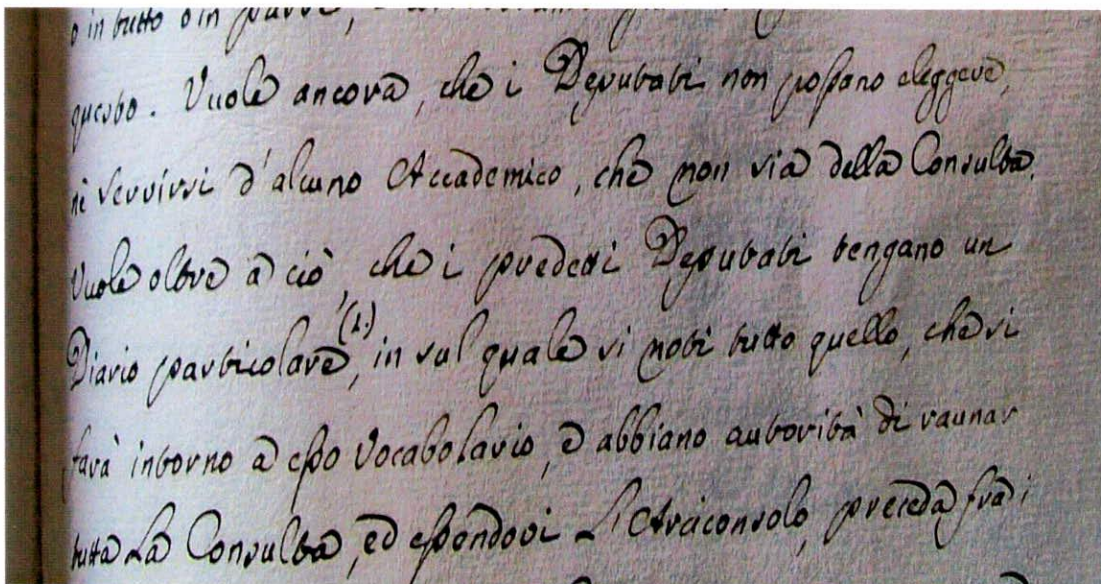 o in tutto o in parte,
questo. Vuole ancora, che i Deputati non possano eleggere,
nè servirsi d'alcuno Accademico, che non sia della Consulta.
Vuole oltre a ciò, che i predetti Deputati tengano un
Diario particolare,(1.) in sul quale si noti tutto quello, che si
farà intorno a esso Vocabolario, e abbiano autorità di raunar
tutta La Consulta, ed essendovi L'Arciconsolo, preceda fra i